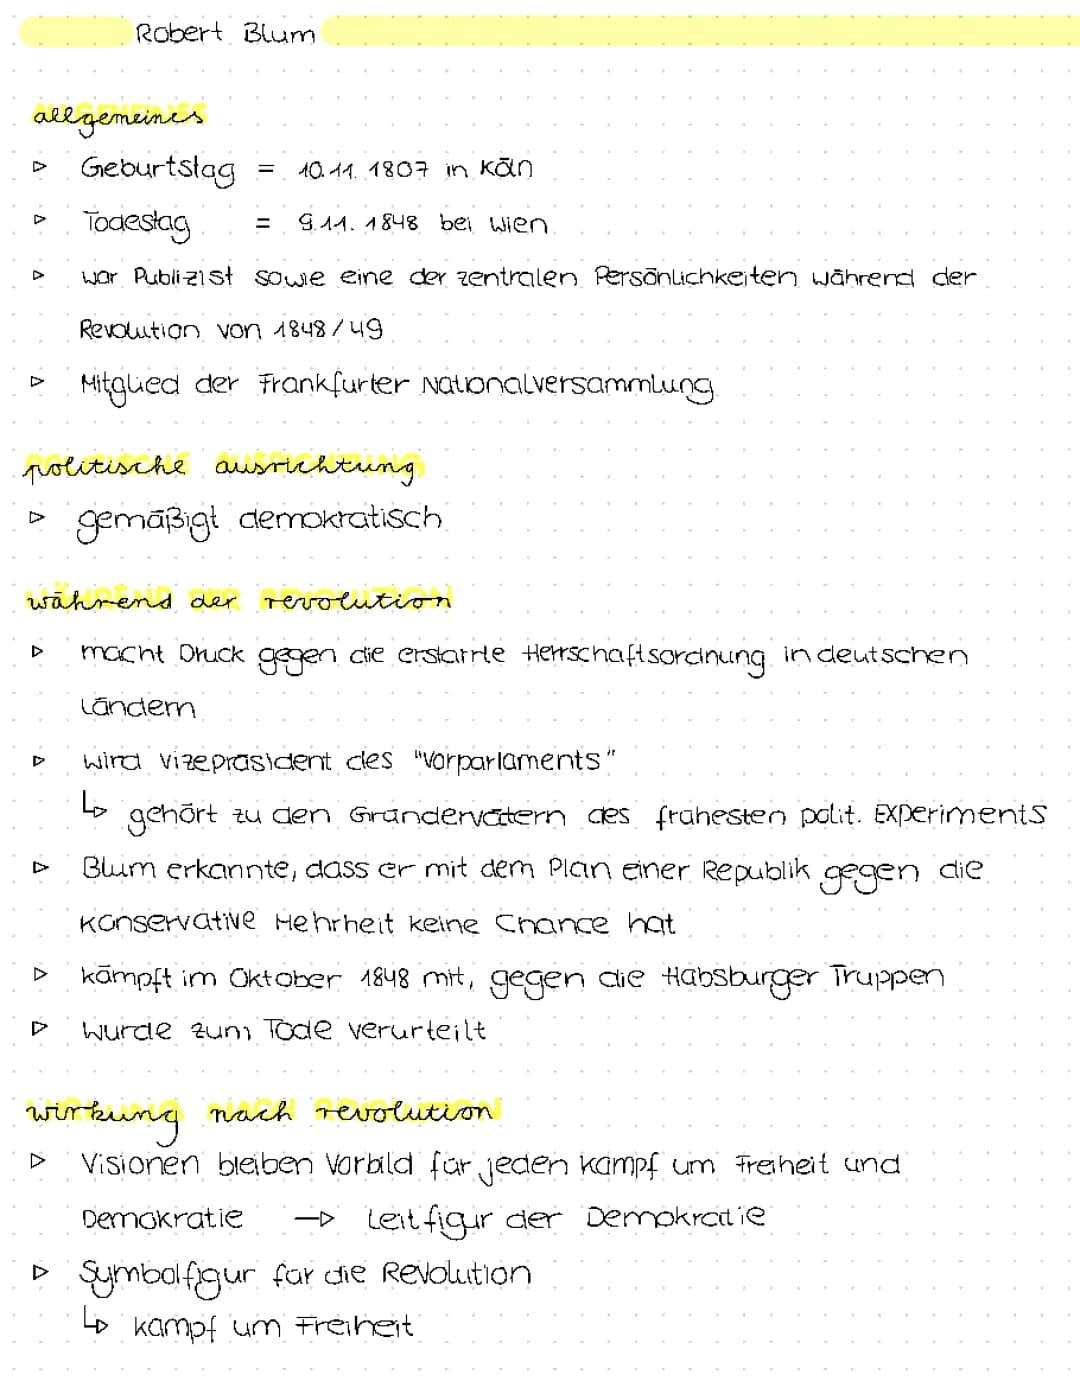 Robert Blum
allgemeines
▷ Geburtstag = 10.11.1807 in Köln
▷ Todestag = 9.11.1848 bei Wien
▷ war Publizist sowie eine der zentralen Persönlichkeiten während der
Revolution von 1848/49
▷ Mitglied der Frankfurter Nationalversammlung
politische ausrichtung
▷ gemäßigt demokratisch
während der revolution
▷ macht Druck gegen die erstarrte Herrschaftsordnung in deutschen
Ländern
▷ wird Vizepräsident des "Vorparlaments"
↳ gehört zu den Gründervätern des frühesten polit. Experiments
▷ Blum erkannte, dass er mit dem Plan einer Republik gegen die
konservative Mehrheit keine Chance hat
▷ kämpft im Oktober 1848 mit, gegen die Habsburger Truppen
▷ wurde zum Tode verurteilt
wirkung nach revolution
▷ Visionen bleiben Vorbild für jeden Kampf um Freiheit und
Demokratie → Leitfigur der Demokratie
▷ Symbolfigur für die Revolution
↳ Kampf um Freiheit